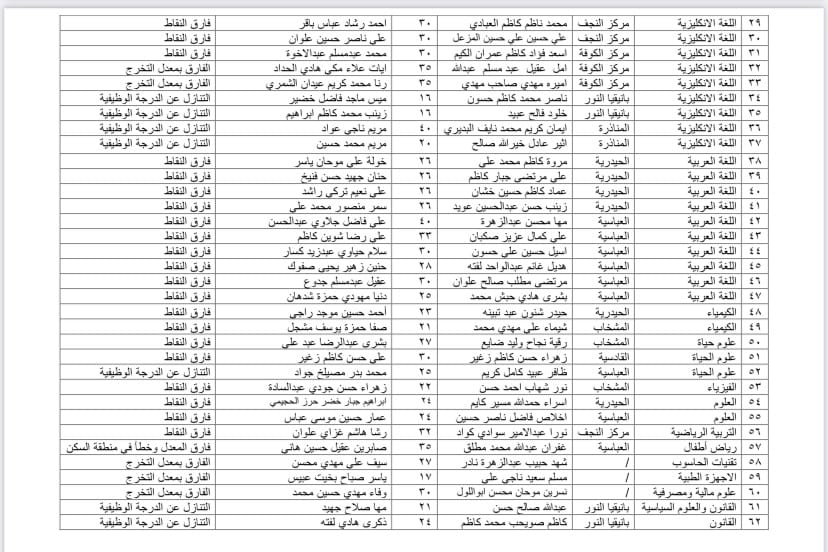 ٢٩ اللغة الانكليزية مركز النجف محمد ناظم كاظم العبادي ٣٠ احمد رشاد عباس باقر فارق النقاط
٣٠ اللغة الانكليزية مركز النجف علي حسين علي حسين المزعل ٣٠ على ناصر حسين علوان فارق النقاط
٣١ اللغة الانكليزية مركز الكوفة اسعد فزاد كاظم عمران الكيم ٣٠ محمد عبدمسلم عبدالاخوة فارق النقاط
٣٢ اللغة الانكليزية مركز الكوفة امل عقيل عبد مسلم عبدالله ٣٥ ايات علاء مكي هادي الحداد الفارق بمعدل التخرج
٣٣ اللغة الانكليزية مركز الكوفة اميره مهدي صاحب مهدي ٣٥ رنا محمد كريم عيدان الشمري الفارق بمعدل التخرج
٣٤ اللغة الانكليزية بانيقيا النور ناصر محمد كاظم حسون ١٦ ميس ماجد فاضل خضير التنازل عن الدرجة الوظيفية
٣٥ اللغة الانكليزية بانيقيا النور خلود فالح عبيد ١٦ زينب محمد كاظم ابراهيم التنازل عن الدرجة الوظيفية
٣٦ اللغة الانكليزية المناذرة ايمان كريم محمد نايف البديري ٤٠ مريم ناجي عواد التنازل عن الدرجة الوظيفية
٣٧ اللغة الانكليزية المناذرة اثير عادل خيرالله صالح ٢٠ مريم محمد حسين التنازل عن الدرجة الوظيفية
٣٨ اللغة العربية الحيدرية مروة كاظم محمد على ٢٦ خولة علي موحان ياسر فارق النقاط
٣٩ اللغة العربية الحيدرية على مرتضى جبار كاظم ٢٦ حنان جهيد حسن فنيخ فارق النقاط
٤٠ اللغة العربية الحيدرية عماد كاظم حسين خشان ٢٦ على نعيم تركي راشد فارق النقاط
٤١ اللغة العربية الحيدرية زينب حسن عبدالحسين عويد ٢٦ سمر منصور محمد علي فارق النقاط
٤٢ اللغة العربية العباسية مها محسن عبدالزهرة ٤٠ على فاضل جلاوي عبدالحسن فارق النقاط
٤٣ اللغة العربية العباسية على كمال عزيز صكبان ٣٣ على رضا شوين كاظم فارق النقاط
٤٤ اللغة العربية العباسية اسيل حسين علي حسون ٣٠ سلام حياوي عبدزيد كسار فارق النقاط
٤٥ اللغة العربية العباسية هديل غانم عبدالواحد لفته ٢٨ حنين زهير يحيى صفوك فارق النقاط
٤٦ اللغة العربية العباسية مرتضى مطلب صالح علوان ٣٠ عقيل عبدمسلم جدوع فارق النقاط
٤٧ اللغة العربية العباسية بشرى هادي حبش محمد ٢٥ دنيا مهودي حمزة شدهان فارق النقاط
٤٨ الكيمياء الحيدرية حيدر شنون عبد تبينه ٢٣ أحمد حسين موجد راجى فارق النقاط
٤٩ الكيمياء المشخاب شيماء على مهدي محمد ٢١ صفا حمزة يوسف مشجل فارق النقاط
٥٠ علوم حياة المشخاب رقية نجاح وليد ضايع ٢٧ بشرى عبدالرضا عبد على فارق النقاط
٥١ علوم الحياة القادسية زهراء حسن كاظم زغير ٣٠ على حسن كاظم زغير فارق النقاط
٥٢ علوم الحياة العباسية ظافر عبيد كامل كريم ٢٥ محمد بدر مصيلخ جواد التنازل عن الدرجة الوظيفية
٥٣ الفيزياء المشخاب نور شهاب احمد حسن ٢٢ زهراء حسن جودي عبدالسادة فارق النقاط
٥٤ العلوم الحيدرية اسراء حمدالله مسير كايم ٢٤ ابراهيم جبار خضر حرز الحجيمي فارق النقاط
٥٥ العلوم العباسية اخلاص فاضل ناصر حسين ٢٤ عمار حسين موسى عباس فارق النقاط
٥٦ التربية الرياضية مركز النجف نورا عبدالامير سوادي كواد ٣٢ رشا هاشم غزاي علوان فارق النقاط
٥٧ رياض أطفال العباسية غفران عبدالله محمد مطلق ٣٥ صابرين عقيل حسين هاني فارق المعدل وخطأ في منطقة السكن
٥٨ تقنيات الحاسوب / شهد حبيب عبدالزهرة نادر ٢٧ سيف على مهدي محسن الفارق بمعدل التخرج
٥٩ الاجهزة الطبية / مسلم سعيد ناجي على ١٧ ياسر صباح بخيت عبيس الفارق بمعدل التخرج
٦٠ علوم مالية ومصرفية / نسرين موحان محسن ابواللول ٣٠ وفاء مهدي حسين محمد الفارق بمعدل التخرج
٦١ القانون والعلوم السياسية بانيقيا النور عبدالله صالح حسن ٢١ مها صلاح جهيد التنازل عن الدرجة الوظيفية
٦٢ القانون بانيقيا النور كاظم صويحب محمد كاظم ٢٤ ذكرى هادي لفته التنازل عن الدرجة الوظيفية